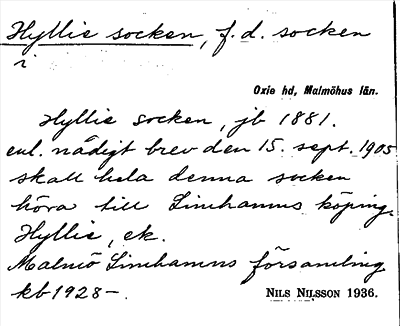 Hyllie socken, f.d. socken
i
Oxie hd, Malmöhus län.
Hyllie socken, jb 1881.
enl. nådigt brev den 15. sept. 1905
skall hela denna socken
höra till Limhamns köping.
Hyllie, ek.
Malmö Limhamns församling
kb 1928-.
NILS NILSSON 1936.